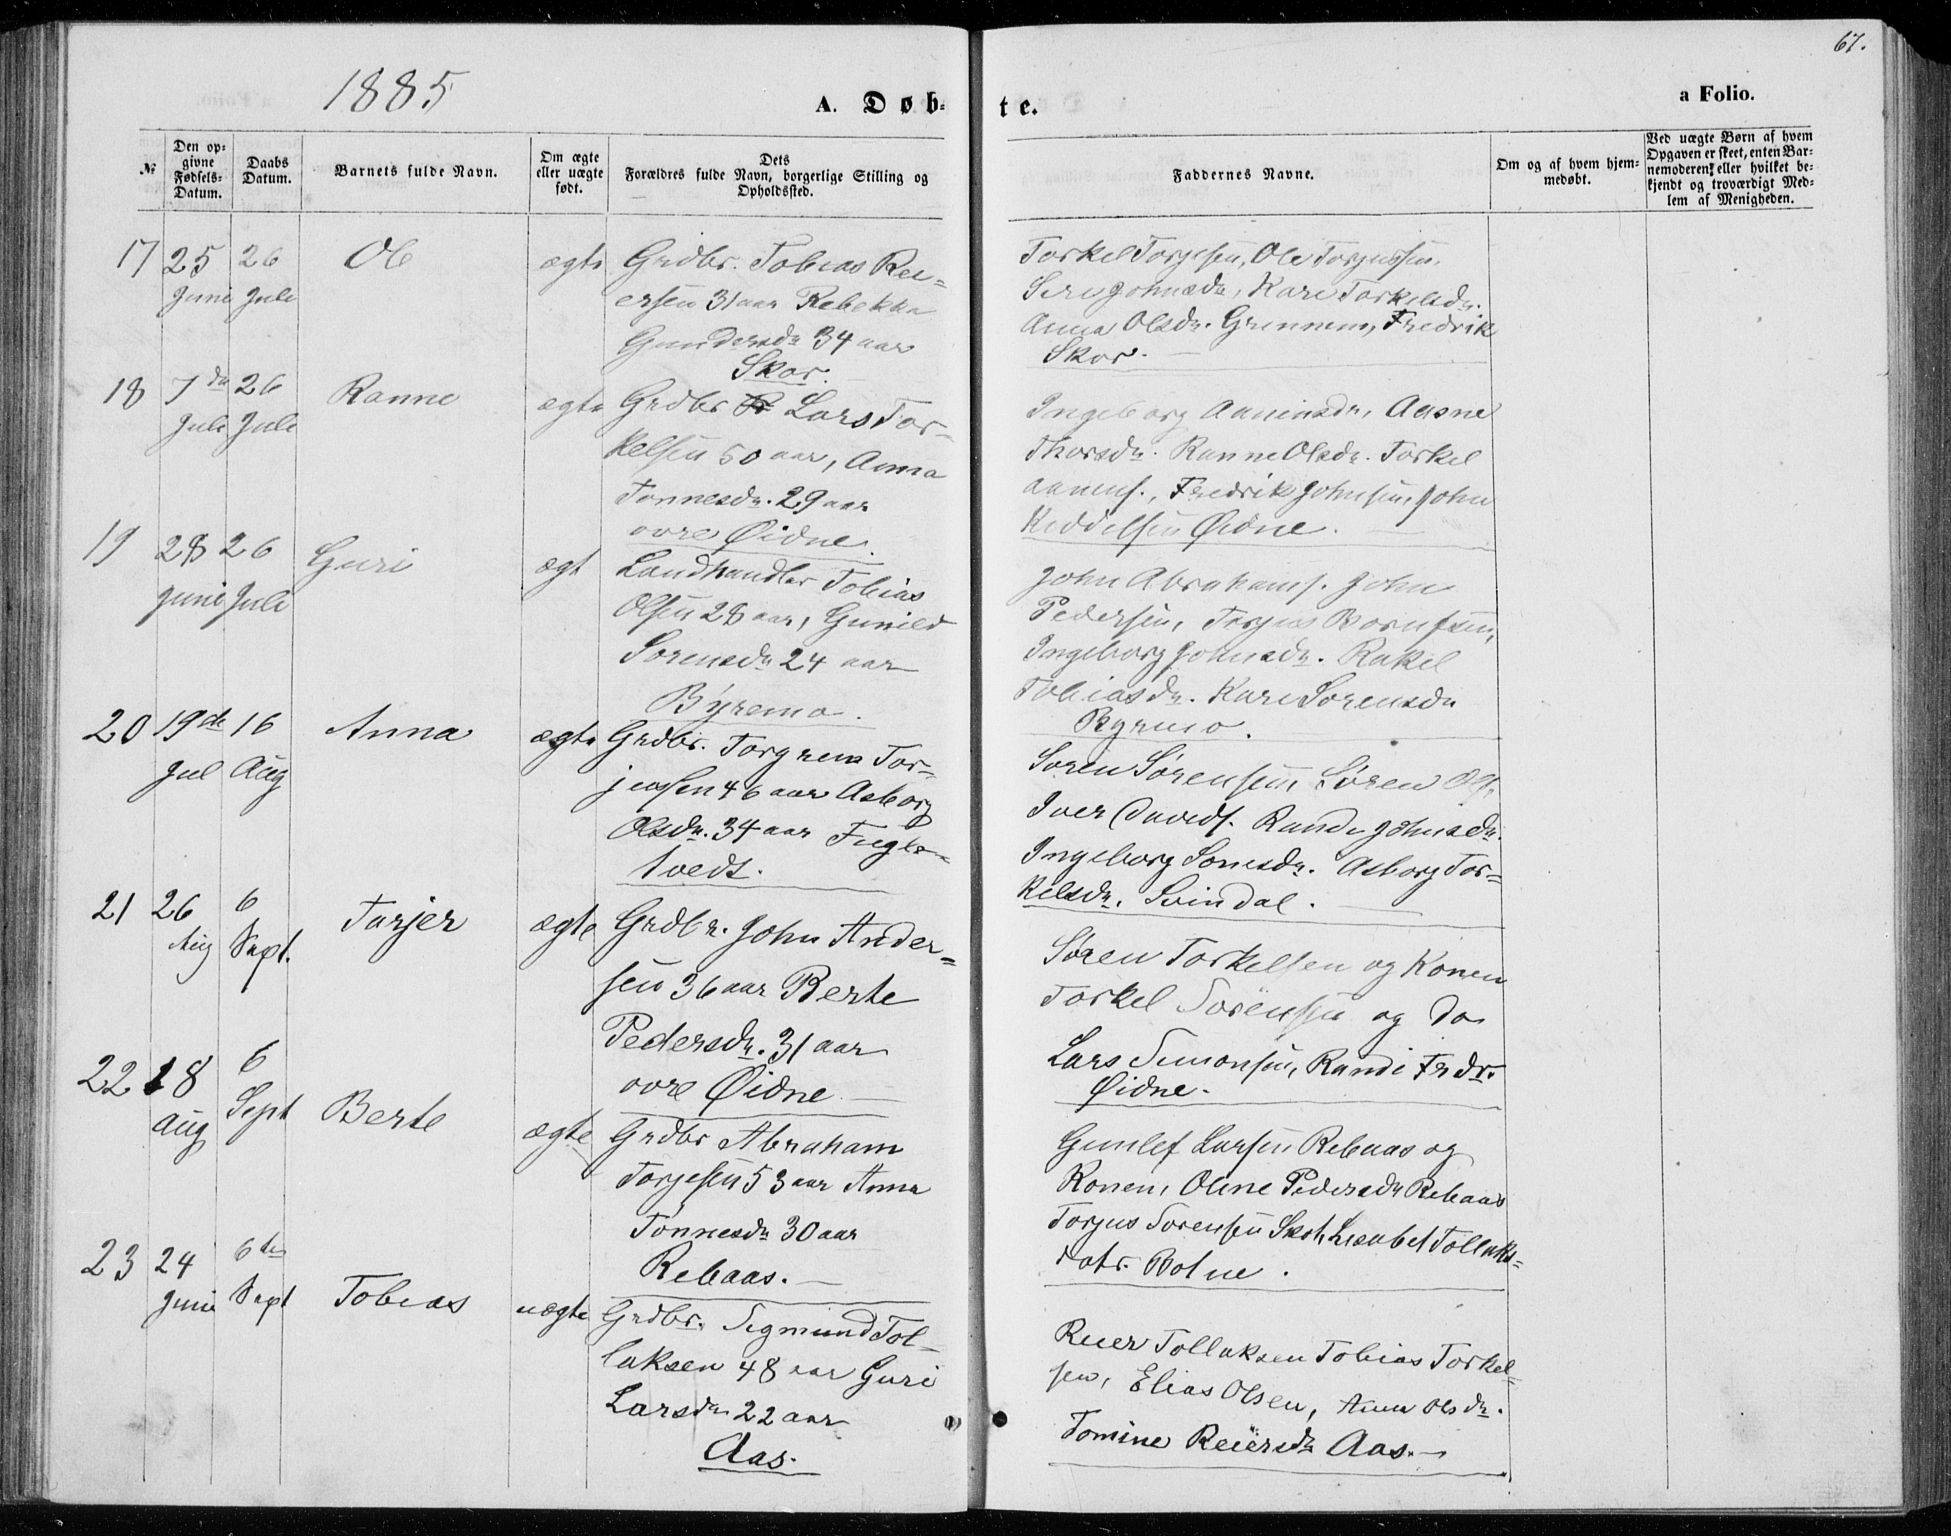 67.
1885
A. Døb-
te.
a Folio.
№
Den op-
givne
Fødsels-
Datum.
Daabs
Datum.
Barnets fulde Navn.
Om ægte
eller uægte
født.
Dets
Forældres fulde Navn, borgerlige Stilling og
Opholdssted.
Faddernes Navne.
Om og af hvem hjem-
medøbt.
Ved uægte Børn af hvem
Opgaven er skeet, enten Bar-
nemoderen eller hvilket be-
kjendt og troværdigt Med-
lem af Menigheden.
17 25 26 Ole ægte Grdbr. Tobias Rei-
Juni Juli ersen 31 aar Rebekka
Gundersdr 34 aar
Skor.
Torkel Torjesen, Ole Torjussen,
Siri Johnsdr, Kari Torkelsdr.
Anna Olsdr. Grennem, Fredrik
Skor.
18 7de 26 Ranne ægte Grdbr Lars Tor-
Juli Juli kelsen 50 aar, Anna
Tonnesdr. 29 aar
ovre Øidne.
Ingeborg Aanensdr, Aasne
Thorsdr. Ranne Olsdr. Torkel
Aanens., Fredrik Johnsen, John
Keddelsen Øidne.
19 28 26 Guri ægt Landhandler Tobias
Juni Juli Olsen 28 aar, Gunild
Sorensdr 24 aar
Byremo.
John Abrahams. John
Pedersen, Torjus
Ingeborg Johnsdr. Rakel
Tobiasdr. Kari Sorensdr
Byremo.
20 19de 16 Anna ægte Grdbr. Torgrem Tor-
Jul Aug jensen 46 aar Asborg
Olsdr. 34 aar Fugle-
tvedt.
Soren Sørensen, Søren Ols.
Iver Davids. Randi Johnsdr.
Ingeborg Sonesdr. Asborg Tor-
kelsdr. Svindal.
21 26 6 Tarjer ægte Grdbr. John Ander-
Aug Sept. sen 36 aar Berte
Pedersdr. 31 aar
ovre Øidne
Søren Torkelsen og Konen
Torkel Sörensen og do
Lars Simonsen, Randi Fredr.
Øidne.
22 18 6 Berte ægte Grdbr Abraham
Aug Sept Torjesen 53 aar Anna
Tonnesdr 30 aar
Rebaas.
Gunlef Larsen Rebaas og
Konen, Oline Pedersdr Rebaas
Torjus Sorensen Skot, Lisabet Tollaks-
datr. Botne.
23 24 6te Tobias uægte Grdbr. Sigmund Tol-
Juni Sept laksen 48 aar Guri
Larsdr 22 aar
Aas.
Reier Tollaksen Tobias Torkel-
sen, Elias Olsen, Anna Olsdr.
Tomine Reiersdr Aas.